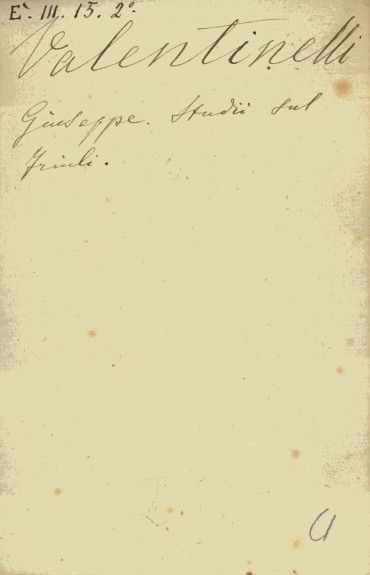 E. III. 15. 2º.
Valentinelli
Giuseppe. Studii sul
Friuli.